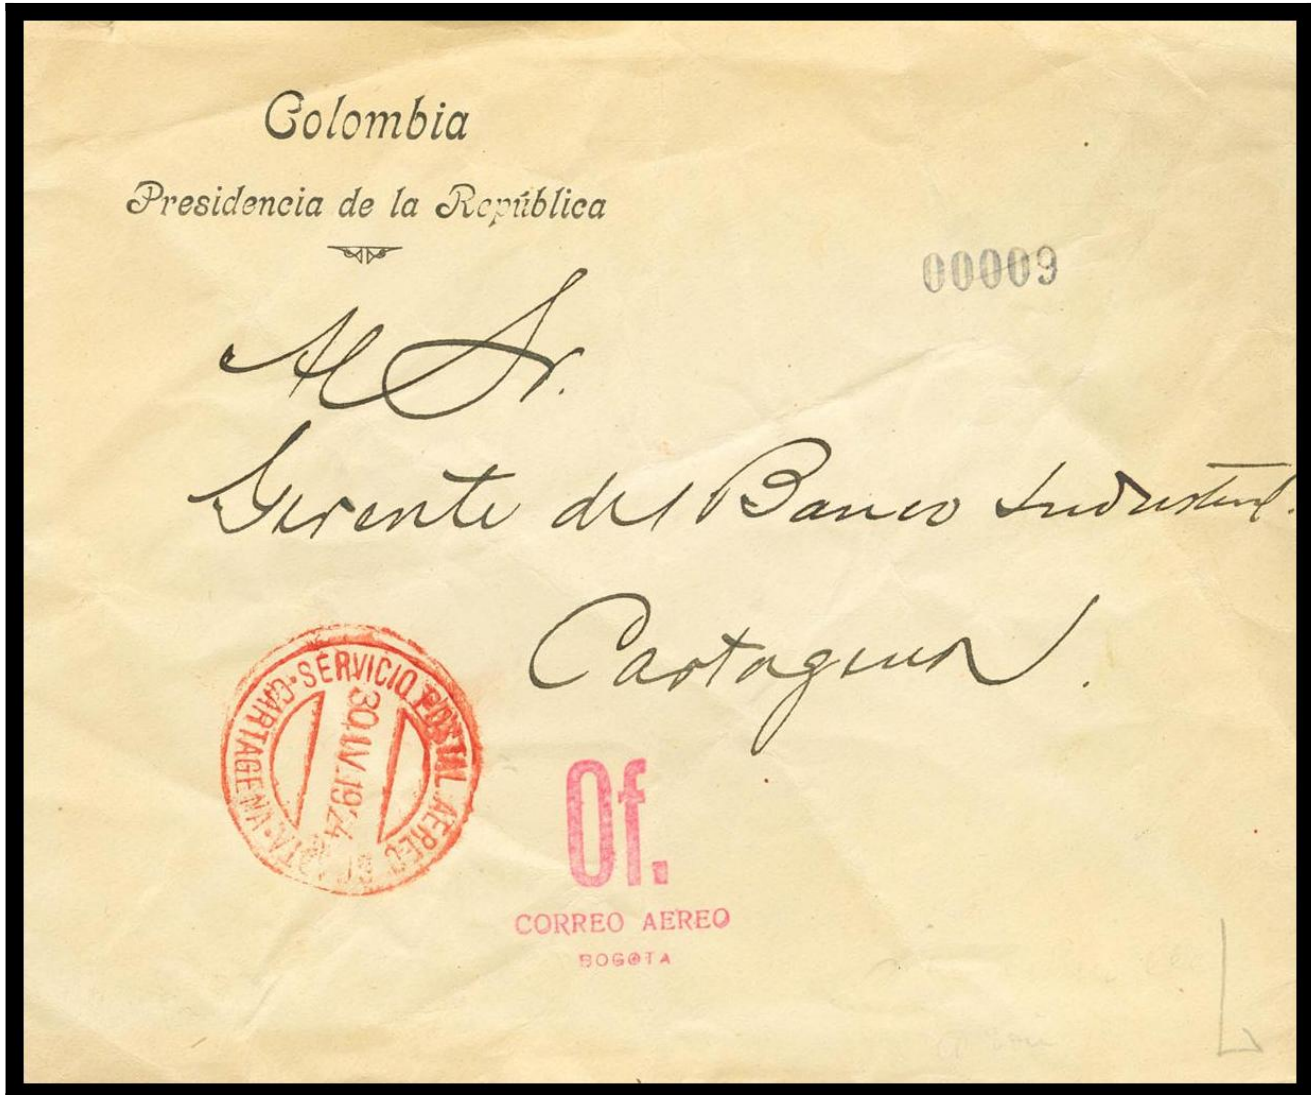 Colombia
Presidencia de la República
00009
Al Sr.
Gerente del Banco Industrial.
Cartagena.
SERVICIO POSTAL AEREO
CARTAGENA
30.IV.1924
Of.
CORREO AEREO
BOGOTA